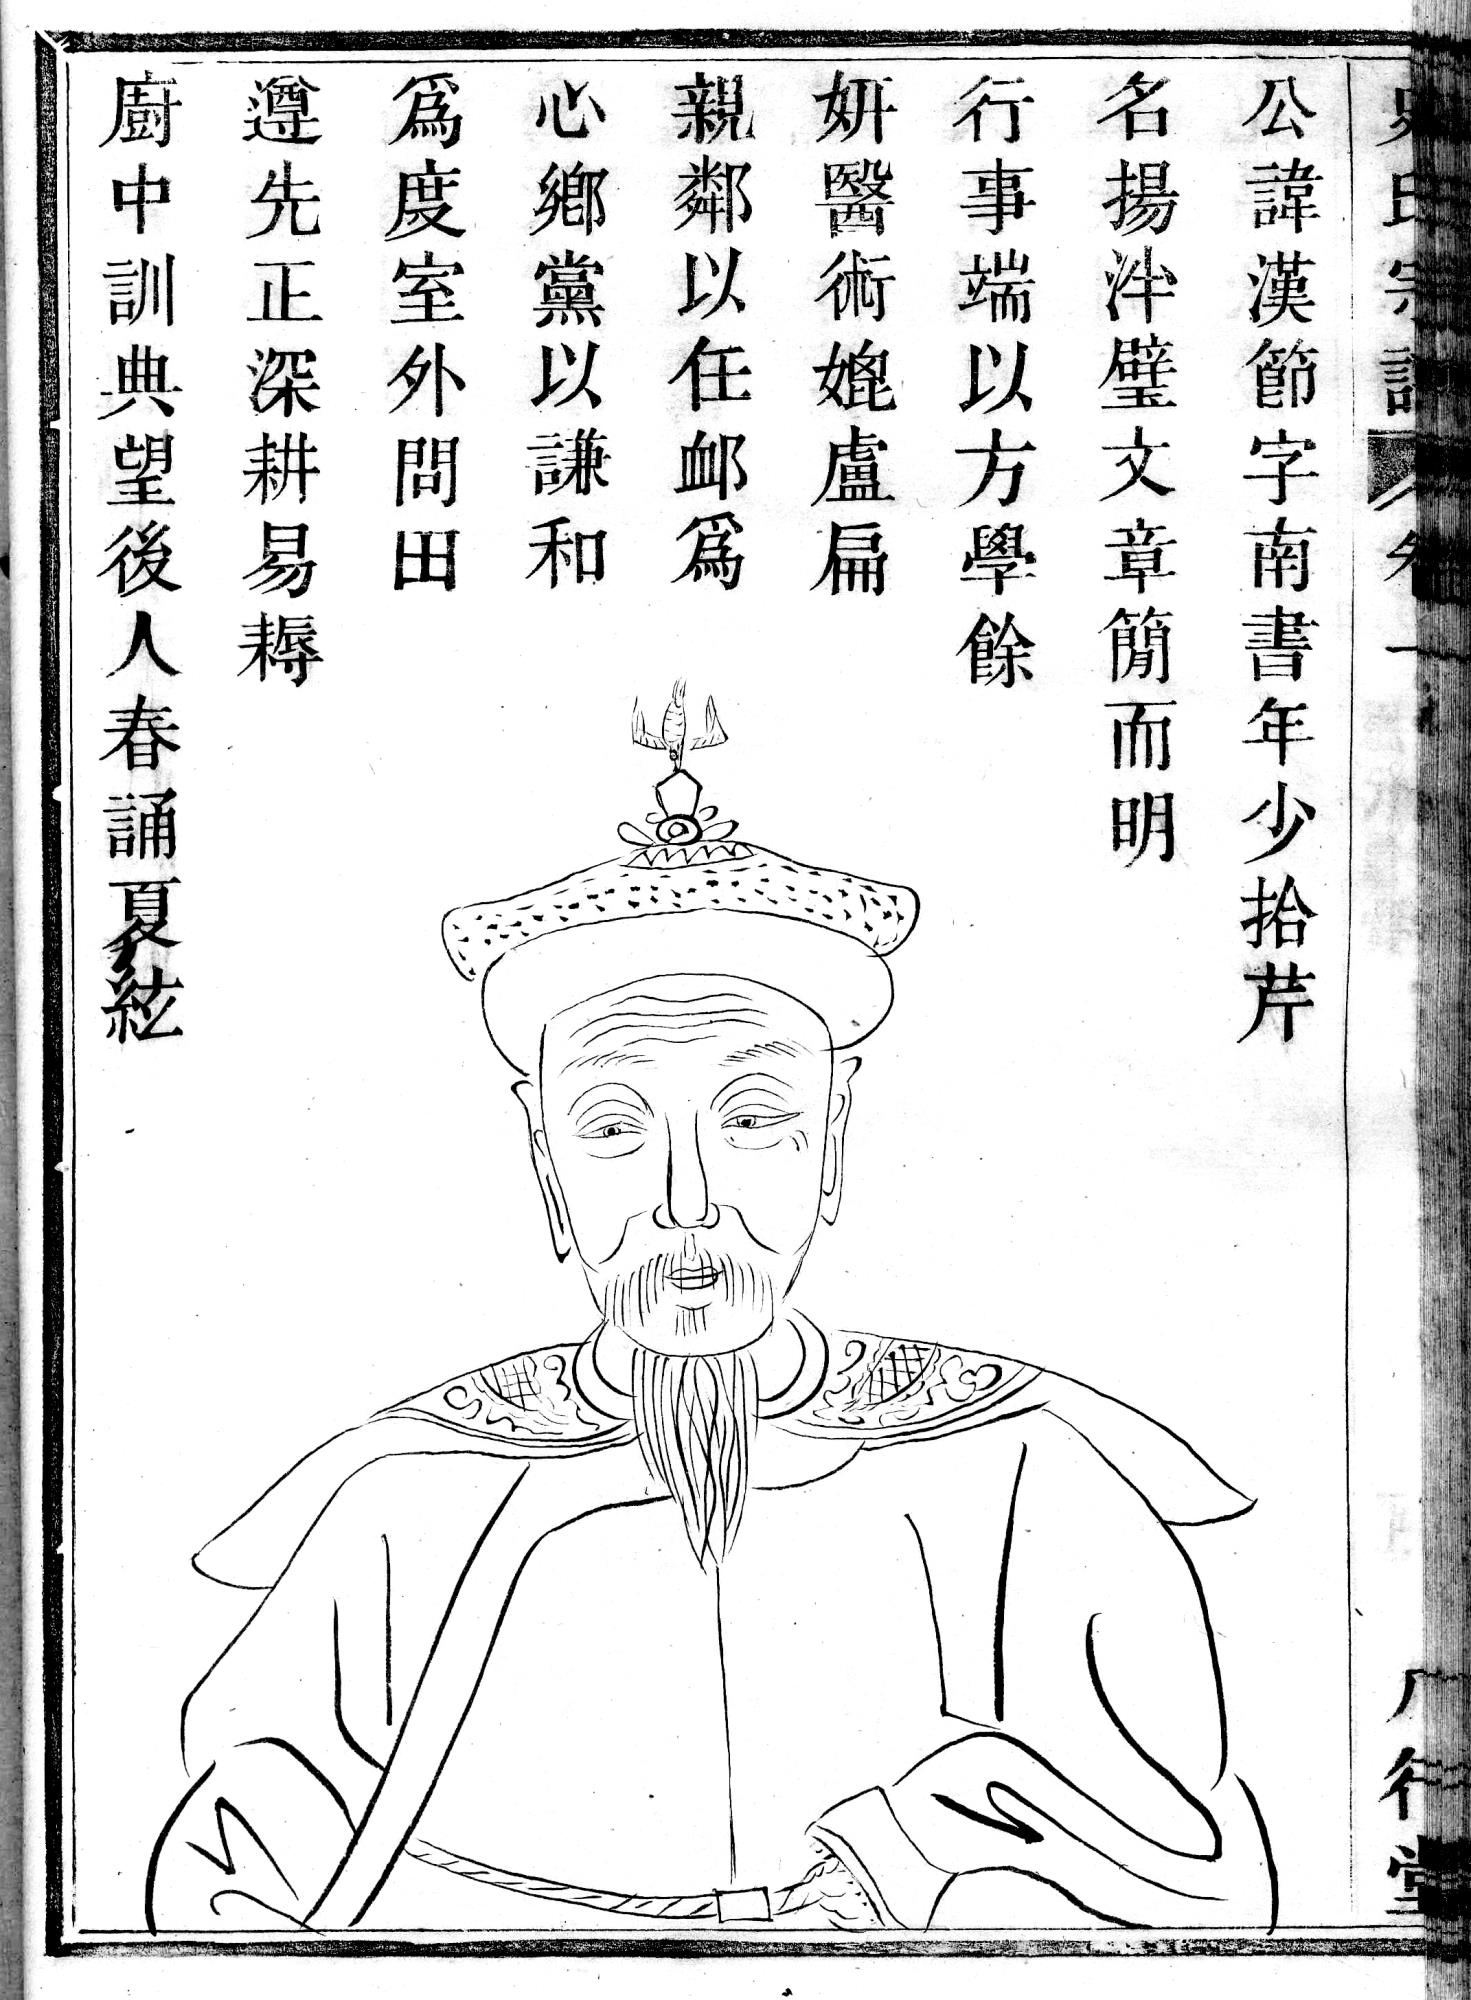 公諱漢節字南書年少拾芹
名揚泮璧文章簡而明
行事端以方學餘
妍醫術媲盧扁
親鄰以任衈爲
心鄉黨以謙和
爲度室外問田
遵先正深耕易耨
廚中訓典望後人春誦夏絃